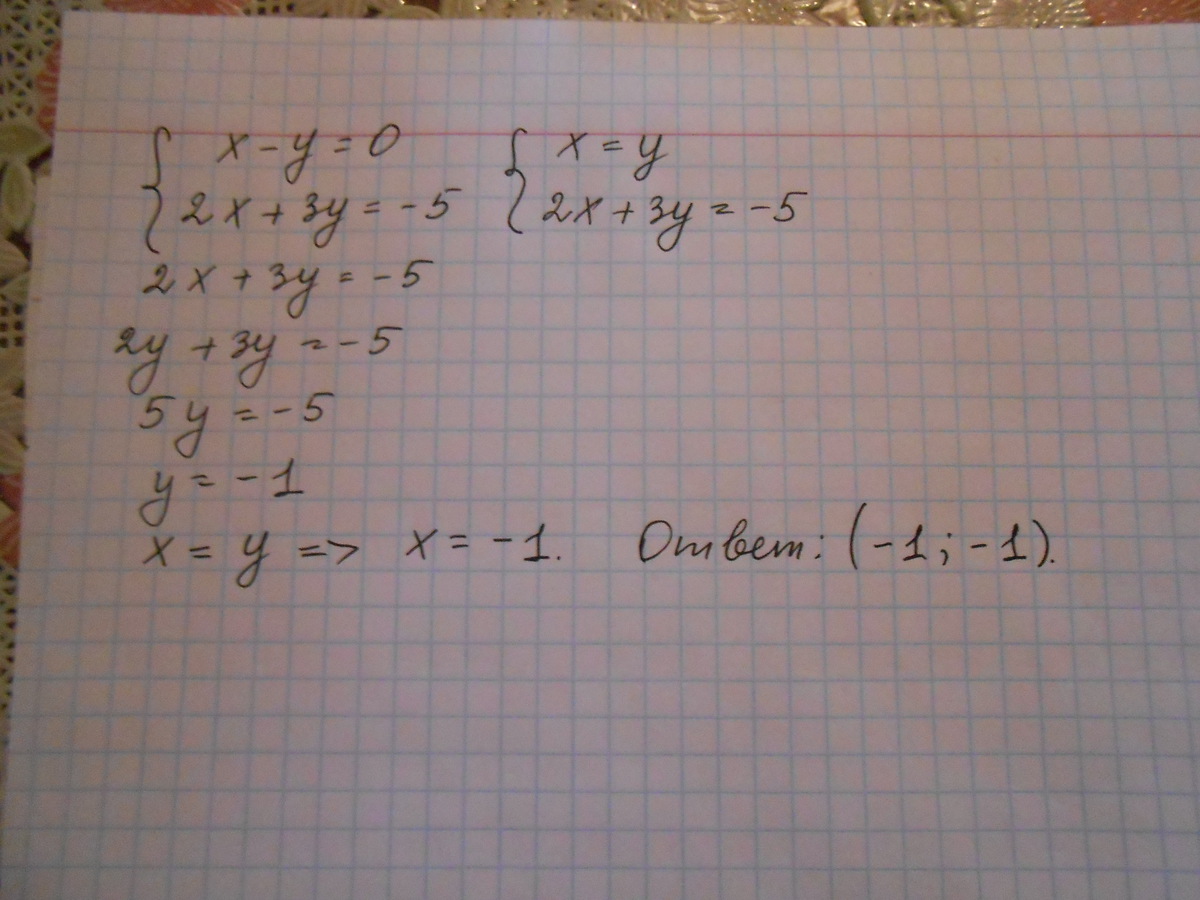 { x - y = 0 { x = y
2x + 3y = -5 2x + 3y = -5
2x + 3y = -5
2y + 3y = -5
5y = -5
y = -1
x = y => x = -1. Ответ: (-1; -1).